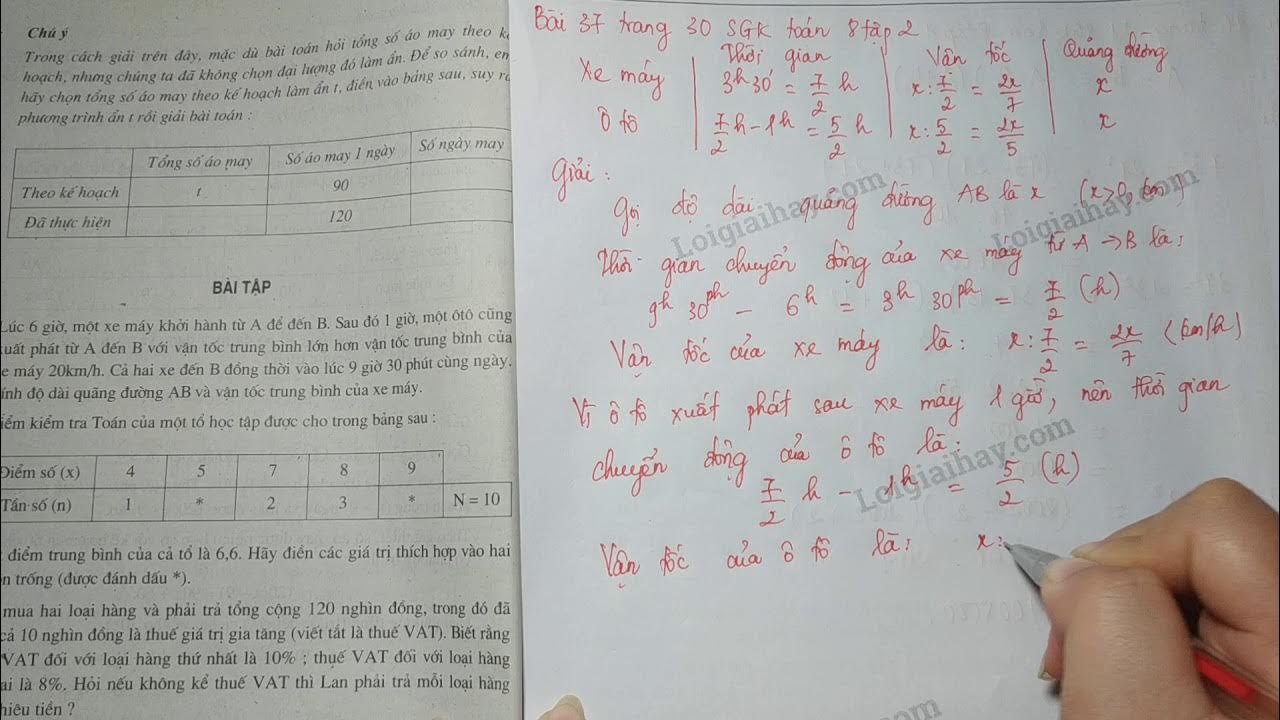 Chú ý
Trong cách giải trên đây, mặc dù bài toán hỏi tổng số áo may theo kế
hoạch, nhưng chúng ta đã không chọn đại lượng đó làm ẩn. Để so sánh, em
hãy chọn tổng số áo may theo kế hoạch làm ẩn t, điền vào bảng sau, suy ra
phương trình ẩn t rồi giải bài toán :
Tổng số áo may Số áo may 1 ngày Số ngày may
Theo kế hoạch t 90
Đã thực hiện 120
BÀI TẬP
Lúc 6 giờ, một xe máy khởi hành từ A để đến B. Sau đó 1 giờ, một ôtô cũng
xuất phát từ A đến B với vận tốc trung bình lớn hơn vận tốc trung bình của
e máy 20km/h. Cả hai xe đến B đồng thời vào lúc 9 giờ 30 phút cùng ngày.
ính độ dài quãng đường AB và vận tốc trung bình của xe máy.
iểm kiểm tra Toán của một tổ học tập được cho trong bảng sau :
Điểm số (x) 4 5 7 8 9
Tần số (n) 1 * 2 3 * N = 10
điểm trung bình của cả tổ là 6,6. Hãy điền các giá trị thích hợp vào hai
n trống (được đánh dấu *).
mua hai loại hàng và phải trả tổng cộng 120 nghìn đồng, trong đó đã
cả 10 nghìn đồng là thuế giá trị gia tăng (viết tắt là thuế VAT). Biết rằng
VAT đối với loại hàng thứ nhất là 10% ; thuế VAT đối với loại hàng
ai là 8%. Hỏi nếu không kể thuế VAT thì Lan phải trả mỗi loại hàng
hiêu tiền ?
Bài 37 trang 30 SGK toán 8 tập 2
Thời gian Vận tốc Quãng đường
Xe máy 3h30' = 7/2 h x : 7/2 = 2x/7 x
Ô tô 7/2 h - 1h = 5/2 h x : 5/2 = 2x/5 x
Giải :
Gọi độ dài quãng đường AB là x (x>0, km)
Thời gian chuyển động của xe máy từ A → B là :
9h 30ph - 6h = 3h 30ph = 7/2 (h)
Vận tốc của xe máy là : x : 7/2 = 2x/7 (km/h)
Vì ô tô xuất phát sau xe máy 1 giờ, nên thời gian
chuyển động của ô tô là :
7/2 h - 1h = 5/2 (h)
Vận tốc của ô tô là : x :
Loigiaihay.com
Loigiaihay.com
Loigiaihay.com